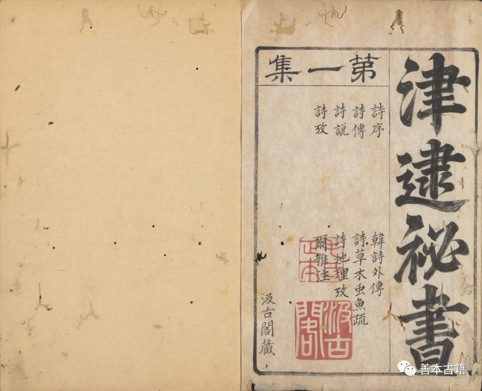 津逮祕書
第一集
詩序
詩傳
詩説
詩攷
韓詩外傳
詩草木虫魚疏
詩地理攷
爾雅注
汲古閣藏
汲古閣
善本古籍